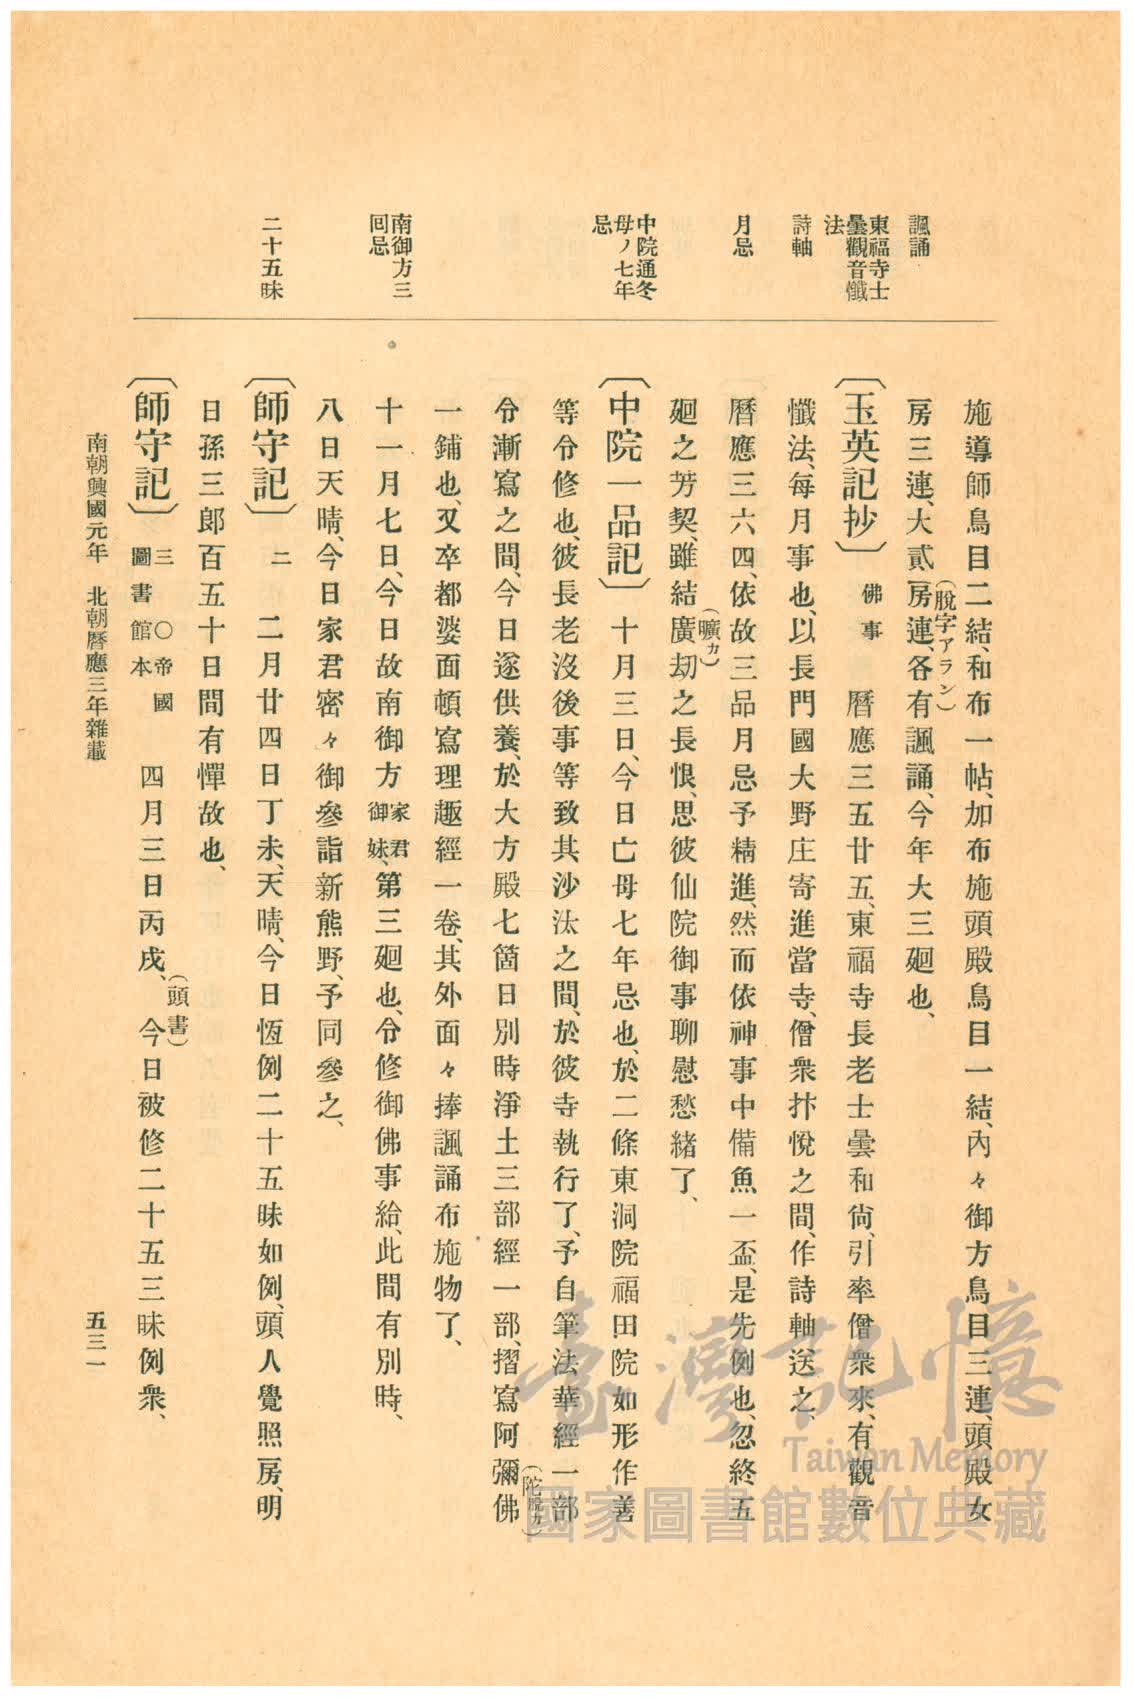 諷誦
東福寺士
曇觀音懺
法
詩軸
月忌
中院通冬
母ノ七年
忌
南御方三
回忌
二十五昧
施導師鳥目二結、和布一帖、加布施頭殿鳥目一結、內々御方鳥目三連、頭殿女
房三連、大貳房連、各有諷誦、今年大三廻也、
(脫字アラン)
〔玉英記抄〕佛事 曆應三五廿五、東福寺長老士曇和尙、引率僧衆來、有觀音
懺法、每月事也、以長門國大野庄寄進當寺、僧衆抃悅之間、作詩軸送之、
曆應三六四、依故三品月忌予精進、然而依神事中備魚一盃、是先例也、忽終五
廻之芳契、雖結廣劫之長恨、思彼仙院御事聊慰愁緒了、
(曠カ)
〔中院一品記〕十月三日、今日亡母七年忌也、於二條東洞院福田院如形作善
等令修也、彼長老沒後事等致其沙汰之間、於彼寺執行了、予自筆法華經一部
令漸寫之間、今日遂供養、於大方殿七箇日別時淨土三部經一部、摺寫阿彌佛
(陀脫カ)
一鋪也、又卒都婆面頓寫理趣經一卷、其外面々捧諷誦布施物了、
十一月七日、今日故南御方家君御妹、第三廻也、令修御佛事給、此間有別時、
八日天晴、今日家君密々御參詣新熊野、予同參之、
〔師守記〕二 二月廿四日丁未、天晴、今日恆例二十五昧如例、頭、人覺照房、明
日孫三郎百五十日間有憚故也、
〔師守記〕三〇帝國圖書館本 四月三日丙戌、今日被修二十五三昧例衆、
(頭書)
南朝興國元年 北朝曆應三年雜載
五三一
臺灣記憶
Taiwan Memory
國家圖書館數位典藏